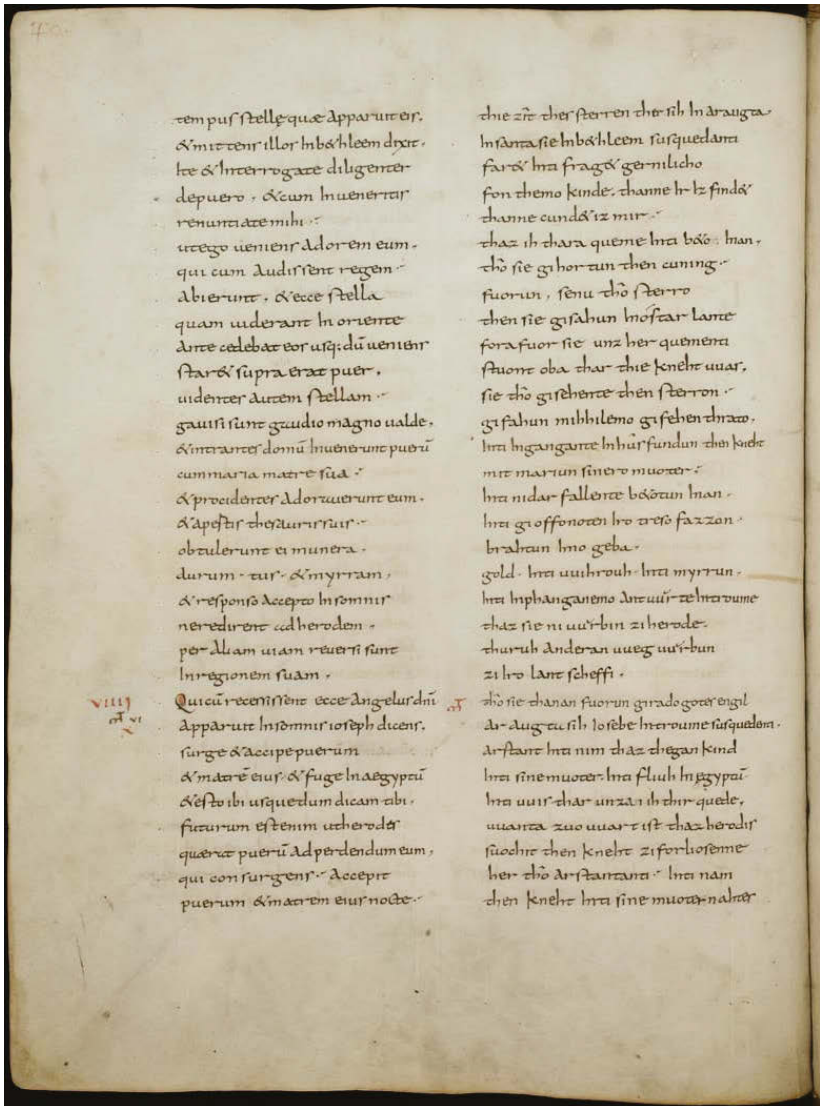 40.
tempus stellę quae apparuit eis.
& mittens illos In b&hleem dixit.
Ite & Interrogate diligenter
de puero . & cum Inueneritis
renuntiate mihi
ut ego ueniens adorem eum.
qui cum audissent regem
abierunt . & ecce stella
quam uiderant In oriente
antecedebat eos usq; dū ueniens
star& supra erat puer.
uidentes autem stellam
gauisi sunt gaudio magno ualde.
& intrantes domū Inuenerunt puerū
cum maria matre sua
& procidentes adorauerunt eum.
& apertis thesauris suis
obtulerunt ei munera.
aurum . tus . & myrram.
& responso accepto In somnis
ne redirent ad herodem.
per aliam uiam reuersi sunt
In regionem suam.
VIIII Qui cū recessissent ecce angelus dn̄i
mt vi apparuit In somnis ioseph dicens.
x surge & accipe puerum
& matrē eius & fuge In aegyptū
& esto ibi usque dum dicam tibi.
futurum est enim ut herodes
quaerat puerū ad perdendum eum.
qui consurgens accepit
puerum & matrem eius nocte
thie zīt thes sterren ther sih In araugta.
In santa sie In b&hleem sus quedanti
far& Inti frag& gernilicho
fon themo kinde. thanne Ir Iz find&
thanne cund& iz mir
thaz ih thara queme Inti b&o Inan.
thō sie gihortun then cuning
fuorun . senu thō sterro
then sie gisahun In óstar lante
forafuor sie unz her quementi
stuont oba thar thie kneht uuas.
sie thō gisehente then sterron
gifahun mihhilemo gifehen thrato.
Inti Ingangante In hús fundun then kneht
mit mariun sinero muoter
Inti nidarfallente b&otun Inan.
Inti gioffonoten Iro tresofazzon
brahtun Imo geba.
gold . Inti uuihrouh . Inti myrrun.
Inti Inphanganemo antuurte In troume
thaz sie ni uuurbin zi herode.
thuruh anderan uueg uuurbun
zi Iro lantscheffi.
mt thō sie thanan fuorun girado gotes engil
araugta sih Iosebe In troume sus quedenti.
arstant Inti nim thaz thegankind
Inti sine muoter. Inti fliuh In ęgyptū
Inti uuis thar unzan ih thir quede.
uuanta zuouuart ist thaz herodis
suochit then kneht zi forliosenne
her thō arstantanti Inti nam
then kneht Inti sine muoter nahtes